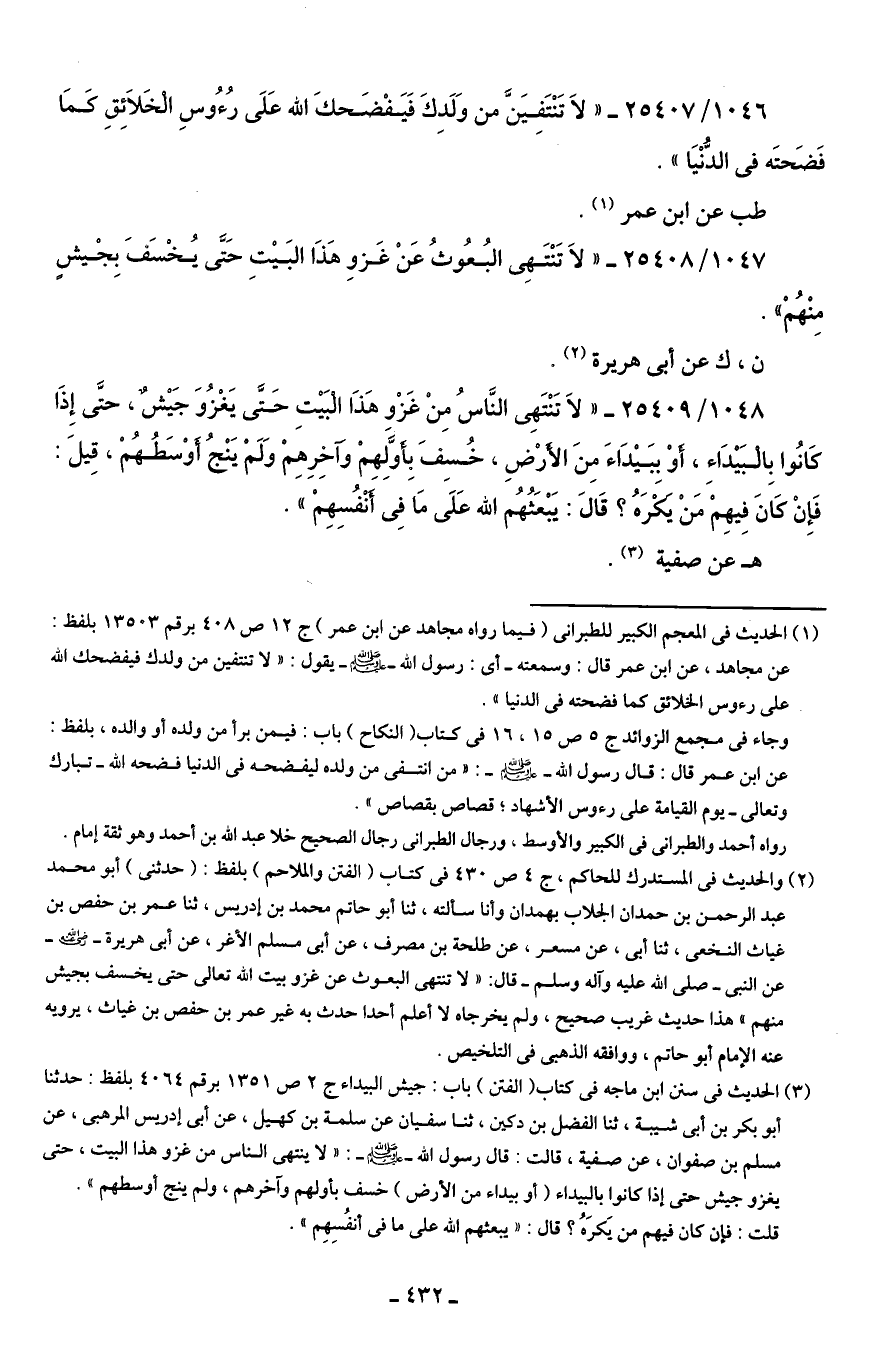 ٢٥٤٠٧/١٠٤٦ ـ « لاَ تَنْتَفِيَنَّ من وَلَدِكَ فَيَفْضَحكَ الله عَلَى رُءُوسِ الْخَلاَئِقِ كَمَا
فَضَحَتَه فى الدُّنْيَا » .
طب عن ابن عمر (١) .
٢٥٤٠٨/١٠٤٧ ـ « لاَ تَنْتَهِى البُعُوثُ عَنْ غَزوِ هَذَا البَيْتِ حَتَّى يُخْسَفَ بِجْيشٍ
مِنْهُمْ» .
ن ، ك عن أبى هريرة (٢) .
٢٥٤٠٩/١٠٤٨ ـ « لاَ تَنْتَهِى النَّاسُ مِنْ غَزْوِ هَذَا الْبَيْتِ حَتَّى يَغْزُوَ جَيْشٌ ، حتَّى إِذَا
كَانُوا بِالْبَيْدَاءِ ، أَوْ بِبَيْدَاءَ مِنَ الأَرْضِ ، خُسِفَ بِأَوَّلِهِمْ وَآخِرِهِمْ وَلَمْ يَنْجُ أَوْسَطُهُمْ ، قِيلَ :
فَإِنْ كَانَ فِيهِمْ مَنْ يَكْرَهُ ؟ قَالَ : يَبْعَثُهُم الله عَلَى مَا فِى أَنْفُسِهِمْ » .
هـ عن صفية (٣) .
(١) الحديث فى المعجم الكبير للطبرانى ( فيما رواه مجاهد عن ابن عمر ) ج ١٢ ص ٤٠٨ برقم ١٣٥٠٣ بلفظ :
عن مجاهد ، عن ابن عمر قال : وسمعته ـ أى : رسول الله ـ ﷺ ـ يقول : « لا تنتفين من ولدك فيفضحك الله
على رءوس الخلائق كما فضحته فى الدنيا » .
وجاء فى مجمع الزوائد ج ٥ ص ١٥ ، ١٦ فى كتاب( النكاح ) باب : فيمن برأ من ولده أو والده ، بلفظ :
عن ابن عمر قال : قال رسول الله ـ ﷺ ـ : « من انتفى من ولده ليفضحه فى الدنيا فضحه الله ـ تبارك
وتعالى ـ يوم القيامة على رءوس الأشهاد ؛ قصاص بقصاص » .
رواه أحمد والطبرانى فى الكبير والأوسط ، ورجال الطبرانى رجال الصحيح خلا عبد الله بن أحمد وهو ثقة إمام .
(٢) والحديث فى المستدرك للحاكم ، ج ٤ ص ٤٣٠ فى كتاب ( الفتن والملاحم ) بلفظ : ( حدثنى ) أبو محمد
عبد الرحمن بن حمدان الجلاب بهمدان وأنا سألته ، ثنا أبو حاتم محمد بن إدريس ، ثنا عمر بن حفص بن
غياث النخعى ، ثنا أبى ، عن مسعر ، عن طلحة بن مصرف ، عن أبى مسلم الأغر ، عن أبى هريرة ـ رضي الله عنه ـ
عن النبى ـ صلى الله عليه وآله وسلم ـ قال: « لا تنتهى البعوث عن غزو بيت الله تعالى حتى يخسف بجيش
منهم » هذا حديث غريب صحيح ، ولم يخرجاه لا أعلم أحدا حدث به غير عمر بن حفص بن غياث ، يرويه
عنه الإمام أبو حاتم ، ووافقه الذهبى فى التلخيص .
(٣) الحديث فى سنن ابن ماجه فى كتاب( الفتن ) باب : جيش البيداء ج ٢ ص ١٣٥١ برقم ٤٠٦٤ بلفظ : حدثنا
أبو بكر بن أبى شيبة ، ثنا الفضل بن دكين ، ثنا سفيان عن سلمة بن كهيل ، عن أبى إدريس المرهبى ، عن
مسلم بن صفوان ، عن صفية ، قالت : قال رسول الله ـ ﷺ ـ : « لا ينتهى الناس من غزو هذا البيت ، حتى
يغزو جيش حتى إذا كانوا بالبيداء ( أو بيداء من الأرض ) خسف بأولهم وآخرهم ، ولم ينج أوسطهم » .
قلت : فإن كان فيهم من يَكرَهُ ؟ قال : « يبعثهم الله على ما فى أنفُسِهِم » .
ـ ٤٣٢ ـ